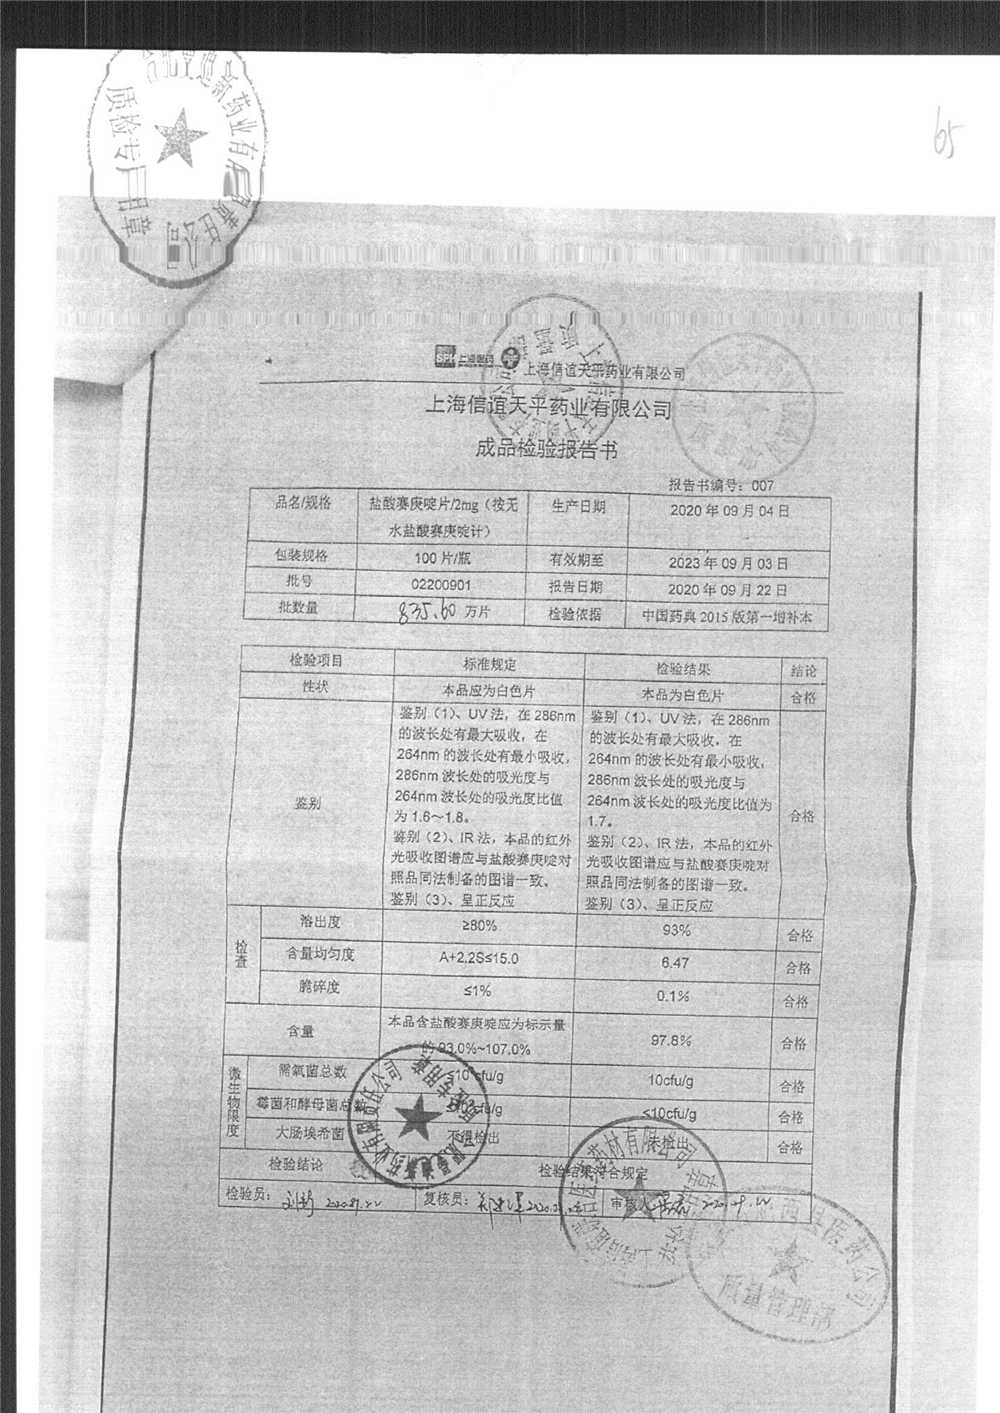 质检专用章
65
SPH 上海医药
上海信谊天平药业有限公司
上海信谊天平药业有限公司
成品检验报告书
报告书编号：007
品名/规格 盐酸赛庚啶片/2mg（按无水盐酸赛庚啶计） 生产日期 2020 年 09 月 04 日
包装规格 100 片/瓶 有效期至 2023 年 09 月 03 日
批号 02200901 报告日期 2020 年 09 月 22 日
批数量 835.60 万片 检验依据 中国药典 2015 版第一增补本
检验项目 标准规定 检验结果 结论
性状 本品应为白色片 本品为白色片 合格
鉴别
鉴别（1）、UV 法，在 286nm
的波长处有最大吸收，在
264nm 的波长处有最小吸收，
286nm 波长处的吸光度与
264nm 波长处的吸光度比值
为 1.6～1.8。
鉴别（2）、IR 法，本品的红外
光吸收图谱应与盐酸赛庚啶对
照品同法制备的图谱一致。
鉴别（3）、呈正反应
鉴别（1）、UV 法，在 286nm
的波长处有最大吸收，在
264nm 的波长处有最小吸收，
286nm 波长处的吸光度与
264nm 波长处的吸光度比值为
1.7。
鉴别（2）、IR 法，本品的红外
光吸收图谱应与盐酸赛庚啶对
照品同法制备的图谱一致。
鉴别（3）、呈正反应
合格
检查
溶出度 ≥80% 93% 合格
含量均匀度 A+2.2S≤15.0 6.47 合格
脆碎度 ≤1% 0.1% 合格
含量 本品含盐酸赛庚啶应为标示量的 93.0%~107.0% 97.8% 合格
微生物限度
需氧菌总数 cfu/g 10cfu/g 合格
霉菌和酵母菌总数 cfu/g ≤10cfu/g 合格
大肠埃希菌 不得检出 未检出 合格
检验结论 检验结果符合规定
检验员： 复核员： 审核人
质量管理部